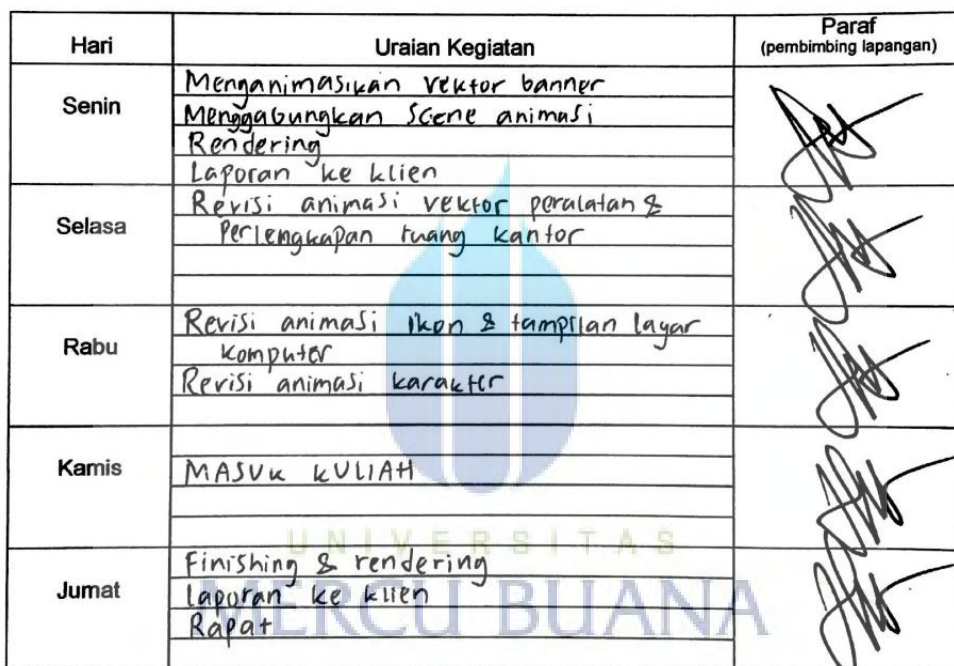 Hari Uraian Kegiatan Paraf
(pembimbing lapangan)
Senin
Menganimasikan vektor banner
Menggabungkan Scene animasi
Rendering
Laporan ke klien
Selasa
Revisi animasi vektor peralatan &
Perlengkapan ruang kantor
Rabu
Revisi animasi ikon & tampilan layar
komputer
Revisi animasi karakter
Kamis
MASUK KULIAH
UNIVERSITAS
Jumat
Finishing & rendering
Laporan ke klien
Rapat
MERCU BUANA